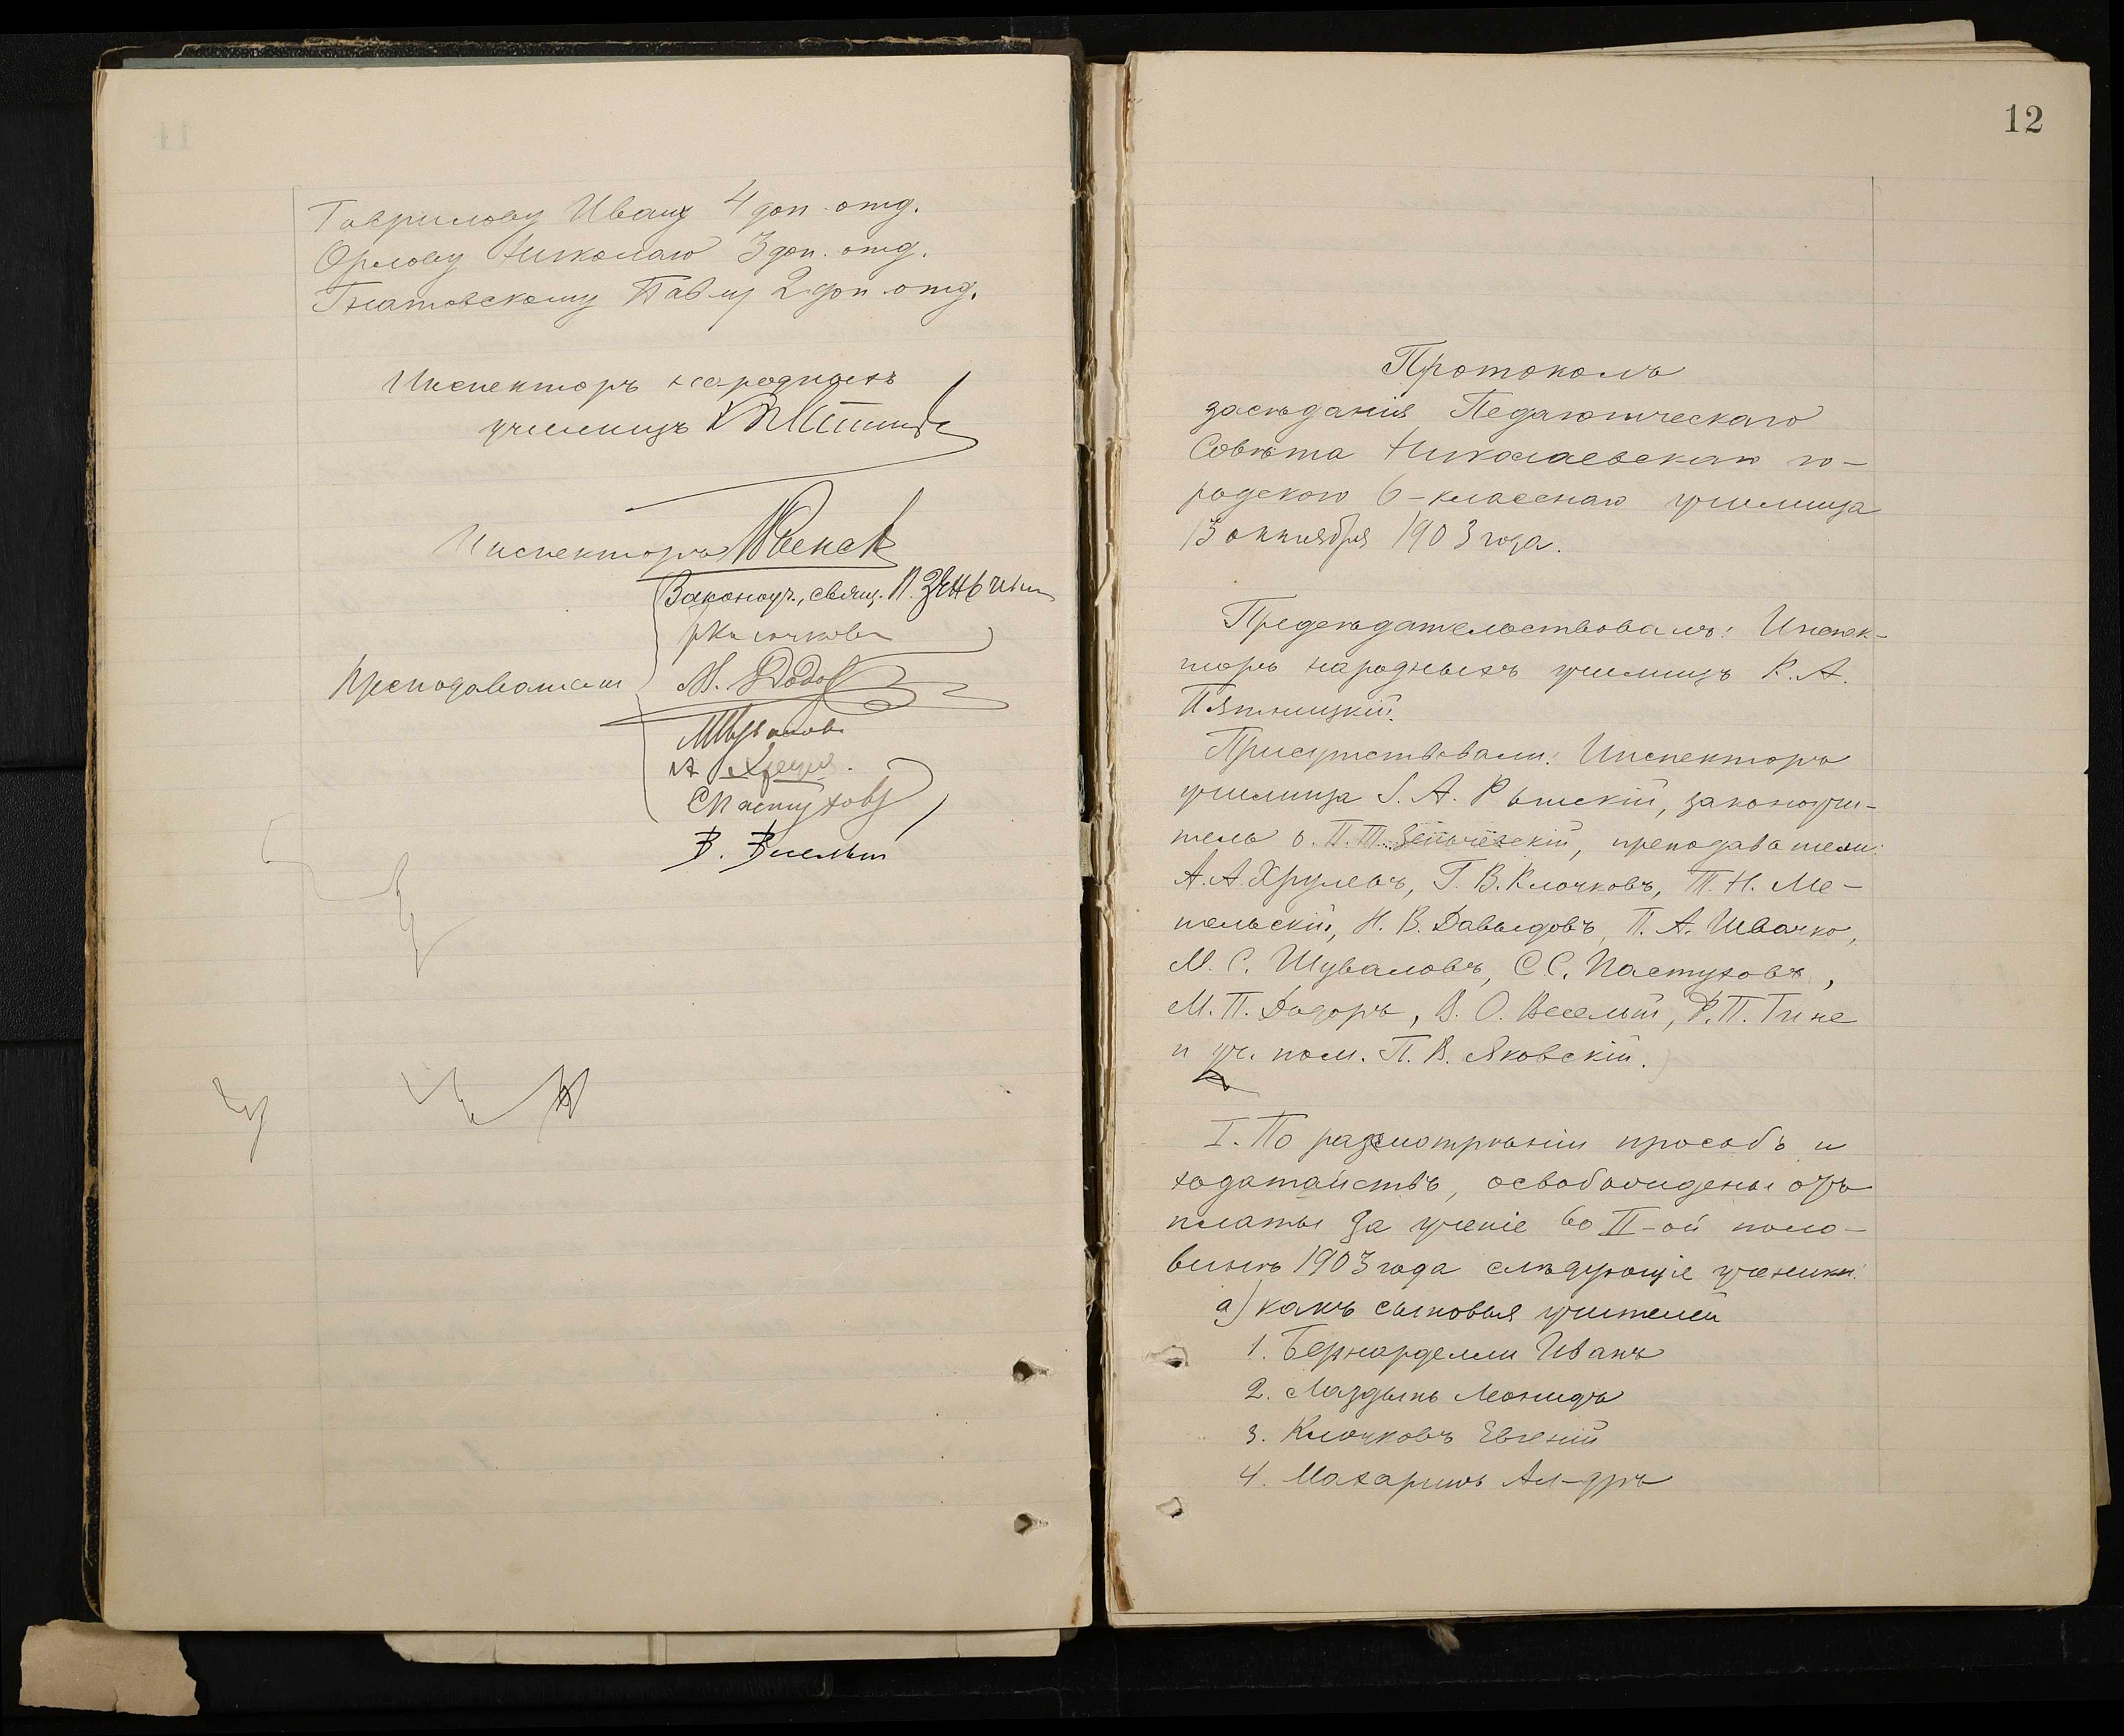 Гаврилову Ивану 4 доп. отд.
Орлову Николаю 3 доп. отд.
Гнатовскому Павлу 2 доп. отд.
Инспекторъ народныхъ
училищъ
Инспекторъ
Законоуч., свящ. П.
Клочковъ
Преподаватели
М. Додор
МШуваловъ
А. Хрулев
СПастуховъ
В. Веселый
12
Протоколъ
засѣданія Педагогическаго
Совѣта Николаевскаго го-
родского 6-класснаго училища
13 октября 1903 года.
Предсѣдательствовалъ: Инспек-
торъ народныхъ училищъ К. А.
Пятницкій.
Присутствовали: Инспекторъ
училища І. А. Рынскій, законоучи-
тель о. П. Т. Зеньчевскій, преподаватели:
А. А. Хрулевъ, Г. В. Клочковъ, Т. Н. Ме-
тельскій, Н. В. Давыдовъ, П. А. Швачко,
М. С. Шуваловъ, С С. Пастуховъ,
М. П. Додоръ, В. О. Веселый, Р. П. Гине
и уч. пом. П. В. Яковскій.
I. По разсмотрѣніи просьбъ и
ходатайствъ, освобождены отъ
платы за ученіе во II-ой поло-
винѣ 1903 года слѣдующіе ученики:
а) какъ сыновья учителей
1. Бернарделли Иванъ
2. Маздынь Леонидъ
3. Клочковъ Евгеній
4. Махаринъ Ал-дръ